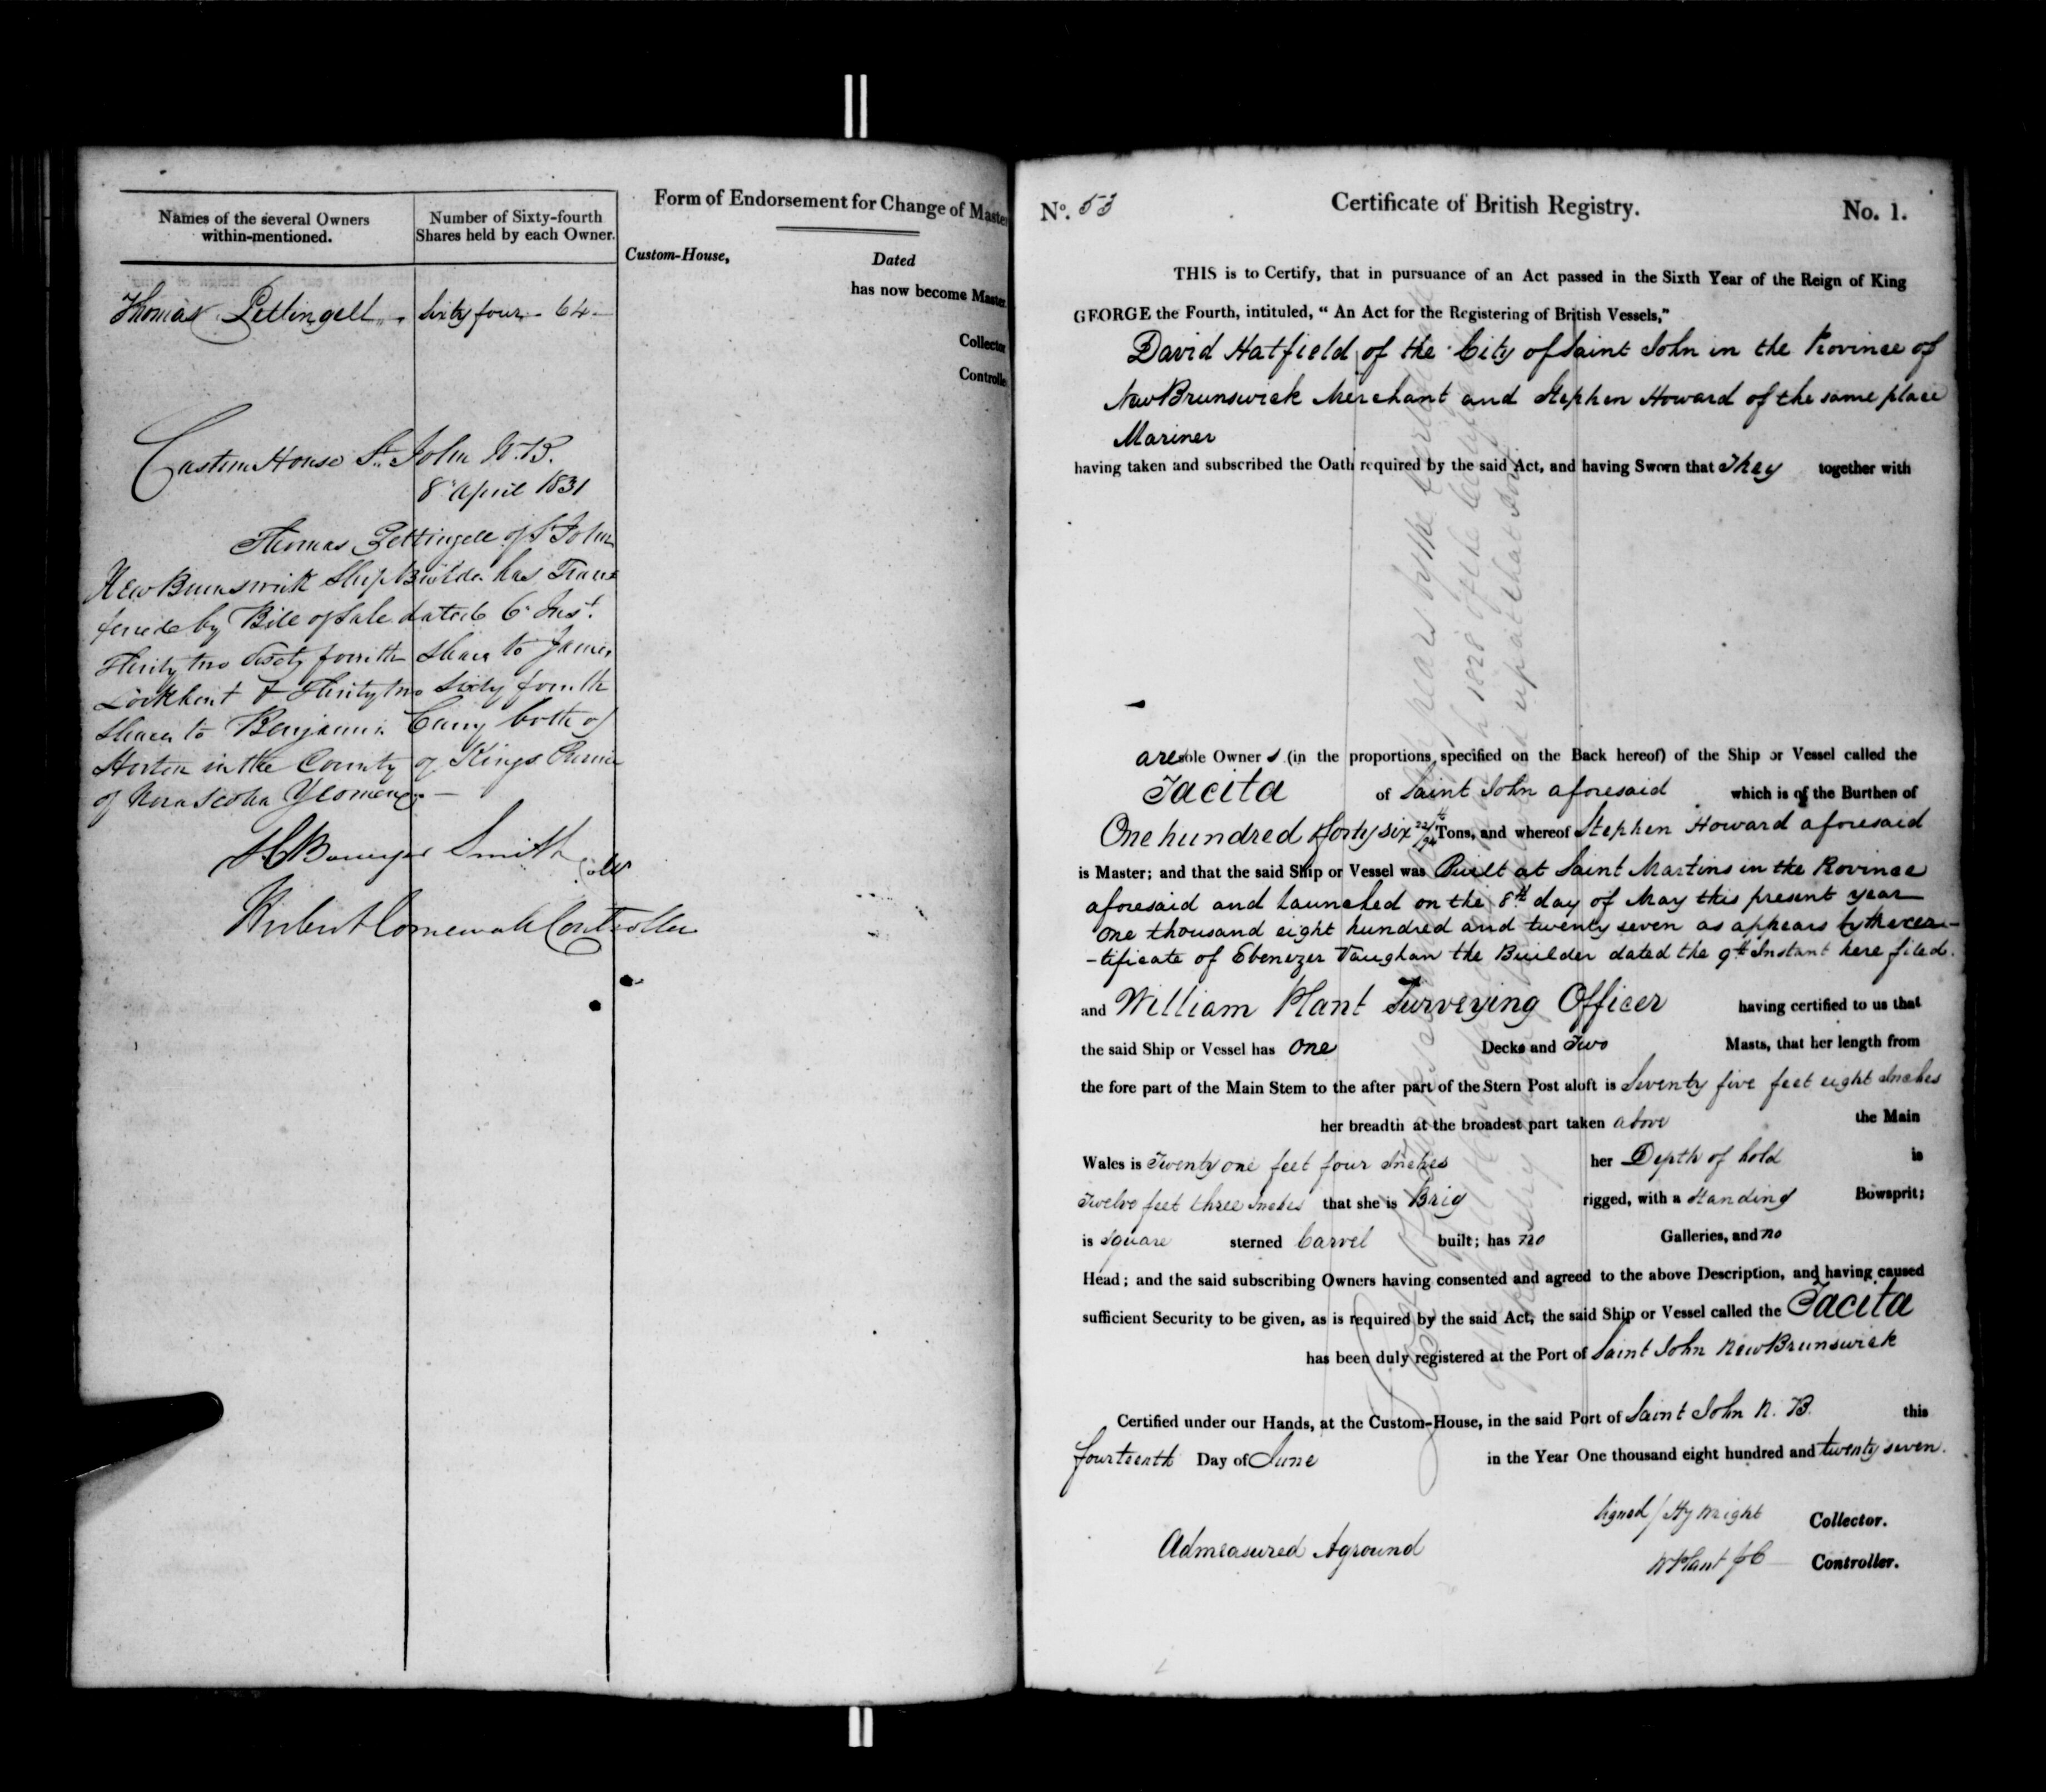 Names of the several Owners
within-mentioned.
Number of Sixty-fourth
Shares held by each Owner.
Thomas Pettingell
Sixty four - 64 -
Custom House St. John N.B.
8th April 1831
Thomas Pettingell of St John
New Brunswick Ship Builder has Trans
ferred by Bill of Sale dated 6th Inst.
Thirty two Sixty fourth Shares to James
Lockhart & Thirty two Sixty fourth
Shares to Benjamin both of
Horton in the County of Kings Province
of Nova Scotia Yeomen
Smith Col
Controller
Form of Endorsement for Change of Master
Custom-House,
Dated
has now become Master
Collector
Controller
No. 53
Certificate of British Registry.
No. 1.
THIS is to Certify, that in pursuance of an Act passed in the Sixth Year of the Reign of King
GEORGE the Fourth, intituled, “ An Act for the Registering of British Vessels,”
David Hatfield of the City of Saint John in the Province of
New Brunswick Merchant and Stephen Howard of the same place
Mariner
having taken and subscribed the Oath required by the said Act, and having Sworn that They together with
are sole Owners (in the proportions specified on the Back hereof) of the Ship or Vessel called the
Tacita of Saint John aforesaid which is of the Burthen of
One hundred forty six 22/94 Tons, and whereof Stephen Howard aforesaid
is Master; and that the said Ship or Vessel was Built at Saint Martins in the Province
aforesaid and launched on the 8th day of May this present year
One thousand eight hundred and twenty seven as appears by the cer-
-tificate of Ebenezer Vaughan the Builder dated the 9th Instant here filed.
and William Plant Surveying Officer having certified to us that
the said Ship or Vessel has One Decks and Two Masts, that her length from
the fore part of the Main Stem to the after part of the Stern Post aloft is Seventy five feet eight Inches
her breadth at the broadest part taken above the Main
Wales is Twenty one feet four Inches her Depth of hold is
Twelve feet three Inches that she is Brig rigged, with a Standing Bowsprit;
is Square sterned Carvel built; has no Galleries, and no
Head; and the said subscribing Owners having consented and agreed to the above Description, and having caused
sufficient Security to be given, as is required by the said Act, the said Ship or Vessel called the Tacita
has been duly registered at the Port of Saint John New Brunswick
Certified under our Hands, at the Custom-House, in the said Port of Saint John N. B. this
fourteenth Day of June in the Year One thousand eight hundred and twenty seven.
Signed / Hy Wright Collector.
Admeasured Aground
W Plant Controller.